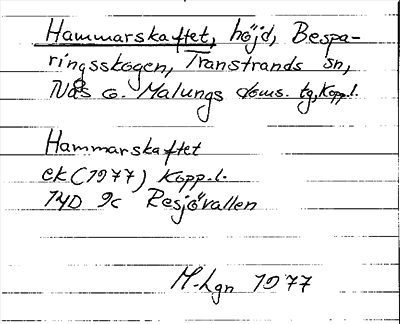 Hammarskaftet, höjd, Bespa-
ringsskogen, Transtrands sn,
Nås o. Malungs doms. tg, Kopp.l.
Hammarskaftet
ek (1977) Kopp.l.
14D 9c Resjövallen
M-Lgn 1977